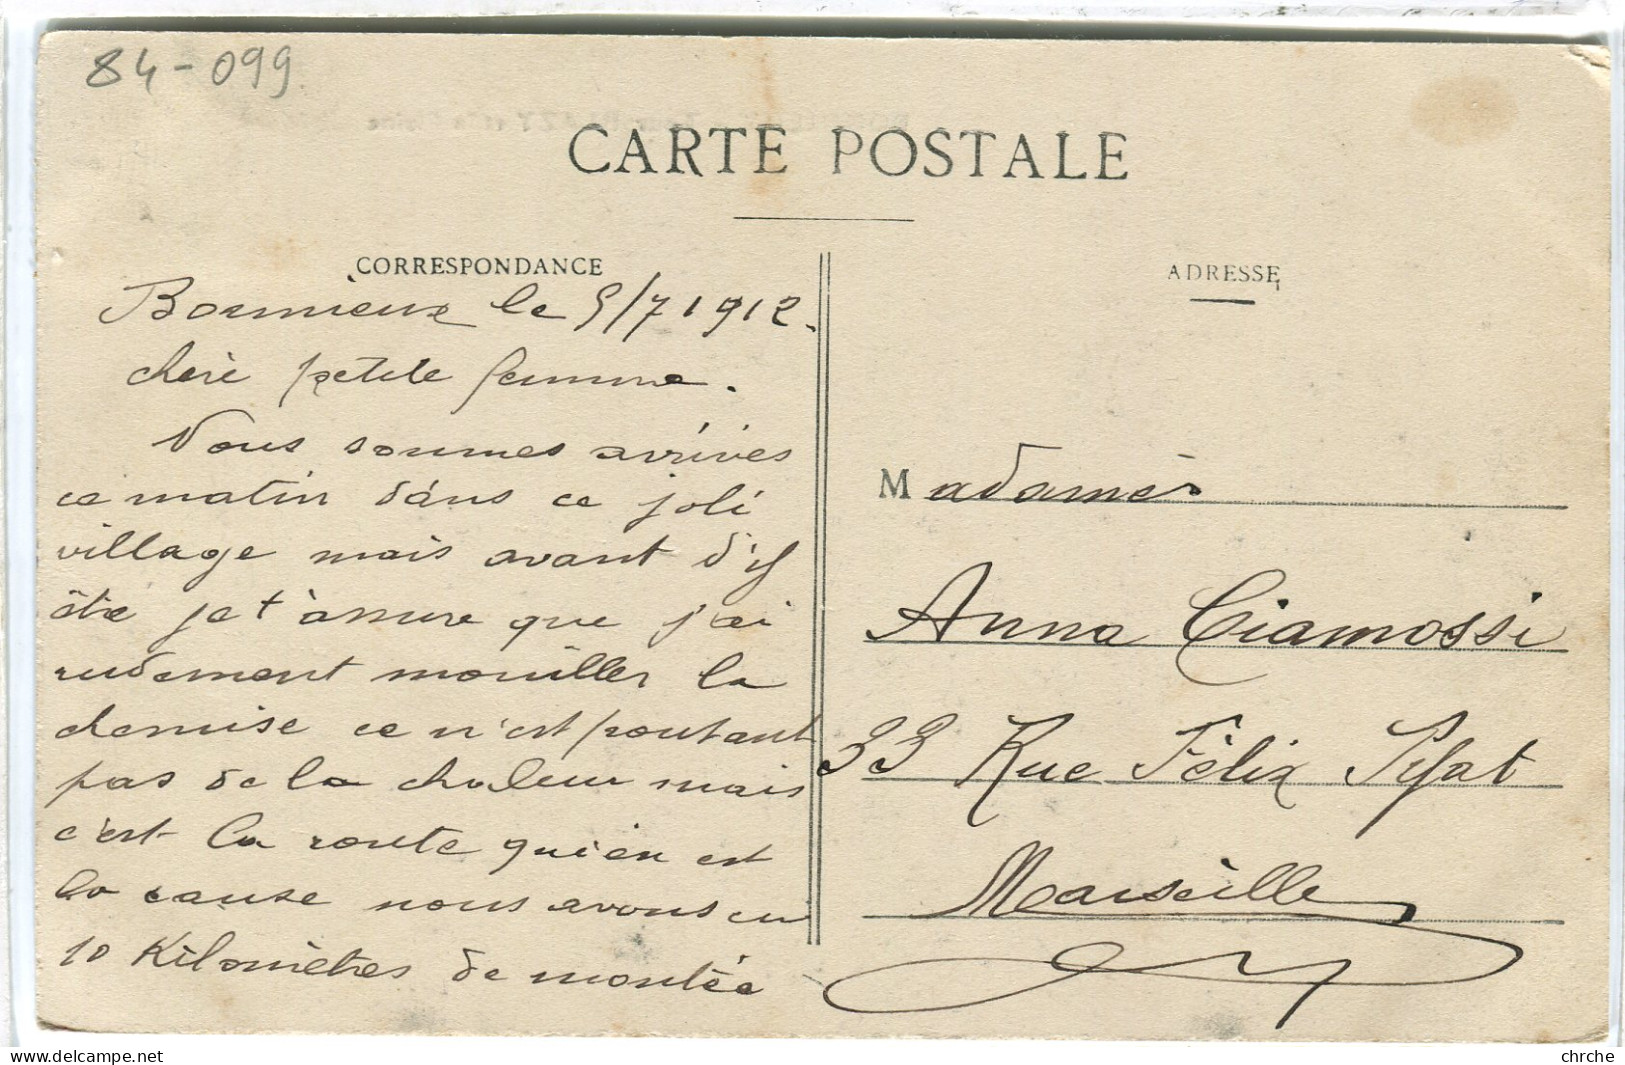 84-099
CARTE POSTALE
CORRESPONDANCE
Bonnieux le 5/7 1912.
chère petite femme.
Nous sommes arrivés
ce matin dans ce joli
village mais avant d'y
être je t'assure que j'ai
rudement mouiller la
chemise ce n'est pourtant
pas de la chaleur mais
c'est la route qui en est
la cause nous avons eu
10 Kilomètres de montée
ADRESSE
Madame
Anna Ciamossi
33 Rue Félix Pyat
Marseille
delcampe.net
chrche